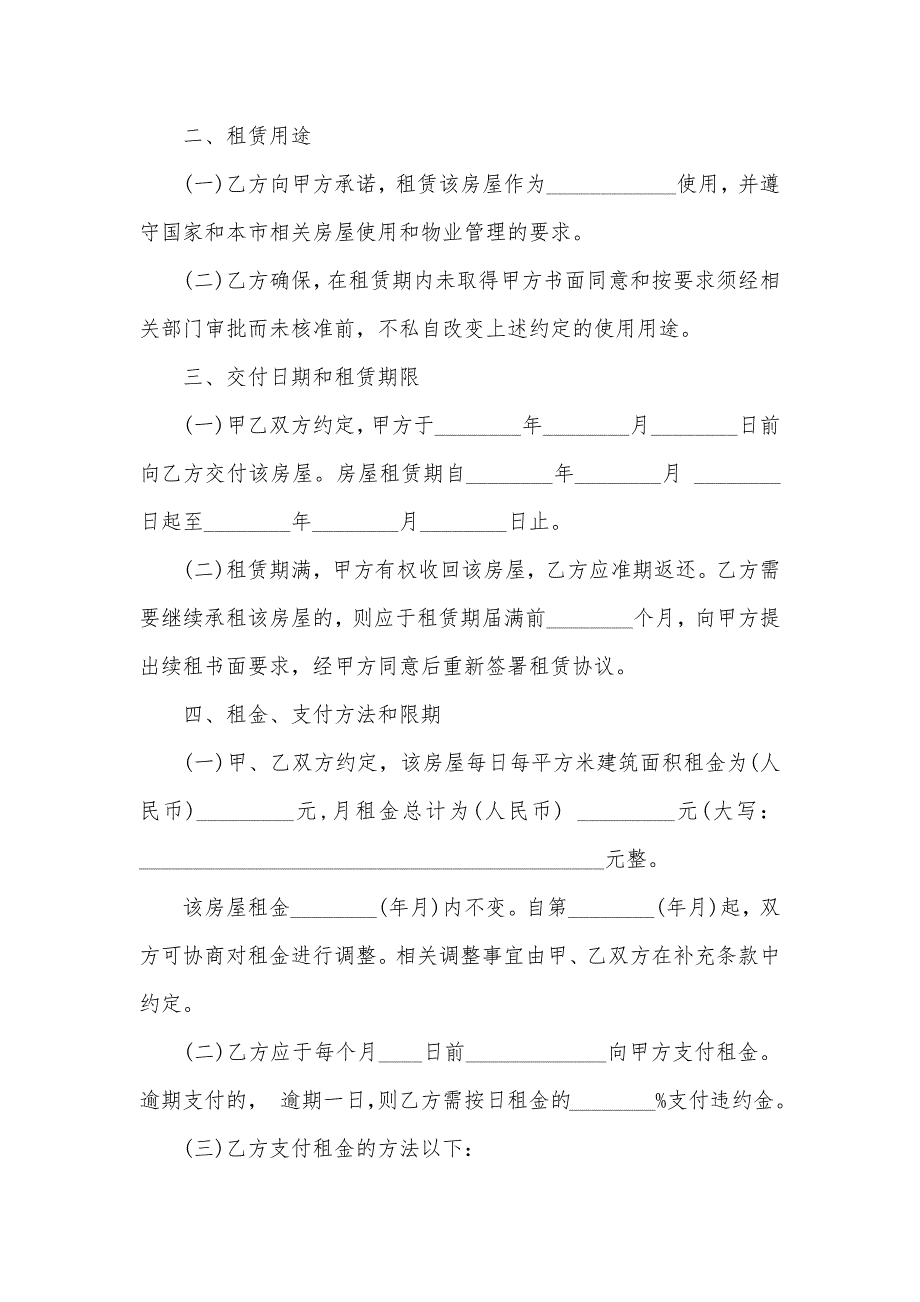 二、租赁用途
(一)乙方向甲方承诺，租赁该房屋作为____________使用，并遵
守国家和本市相关房屋使用和物业管理的要求。
(二)乙方确保，在租赁期内未取得甲方书面同意和按要求须经相
关部门审批而未核准前，不私自改变上述约定的使用用途。
三、交付日期和租赁期限
(一)甲乙双方约定，甲方于________年________月________日前
向乙方交付该房屋。房屋租赁期自________年________月 ________
日起至________年________月________日止。
(二)租赁期满，甲方有权收回该房屋，乙方应准期返还。乙方需
要继续承租该房屋的，则应于租赁期届满前________个月，向甲方提
出续租书面要求，经甲方同意后重新签署租赁协议。
四、租金、支付方法和限期
(一)甲、乙双方约定，该房屋每日每平方米建筑面积租金为(人
民币)_________元,月租金总计为(人民币) _________元(大写：
___________________________________________元整。
该房屋租金________(年月)内不变。自第________(年月)起，双
方可协商对租金进行调整。相关调整事宜由甲、乙双方在补充条款中
约定。
(二)乙方应于每个月____日前_____________向甲方支付租金。
逾期支付的， 逾期一日,则乙方需按日租金的________%支付违约金。
(三)乙方支付租金的方法以下：